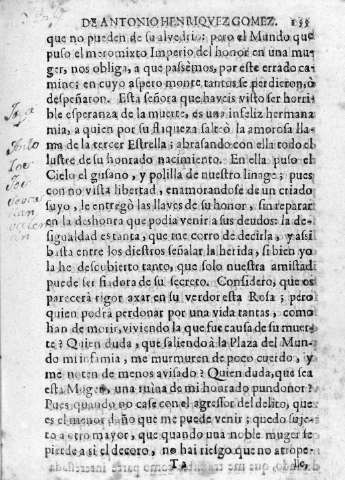 DE ANTONIO HENRIQVEZ GOMEZ. 155
que no pueden de su alvedrio: pero el Mundo que
puso el meromixto Imperio del honor en una mu-
ger, nos obliga, a que passemos, por este errado ca-
mino; en cuyo aspero monte tantas se perdieron, ò
despeñaron. Esta señora que haveis visto ser horri-
ble esperanza de la muerte, es una infeliz hermana
mia, a quien por su flaqueza salteò la amorosa lla-
ma de la tercer Estrella; abrasando con ella todo el
lustre de su honrado nacimiento. En ella puso el
Cielo el gusano, y polilla de nuestro linage; pues
con no vista libertad, enamorandose de un criado
suyo, le entregò las llaves de su honor, sin reparar
en la deshonra que podia venir a sus deudos: la de-
sigualdad es tanta, que me corro de decirla, y assi
basta entre los diestros señalar la herida, si bien yo
la he descubierto tanto, que solo nuestra amistad
puede ser fiadora de su secreto. Considero, que os
parecerà rigor axar en su verdor esta Rosa; pero
quien podrá perdonar por una vida tantas, como
han de morir, viviendo la que fue causa de su muer-
te? Quien duda, que saliendo à la Plaza del Mun-
do mi infamia, me murmuren de poco cuerdo, y
me noten de menos avisado? Quien duda, que sea
esta Muger, una ruina de mi honrado pundonor?
Pues quando no case con el agressor del delito, que
es el menor daño que me puede venir; quedo suje-
to a otro mayor, que quando una noble muger se
pierde a si el decoro, no hai riesgo que no atrope-
lle,